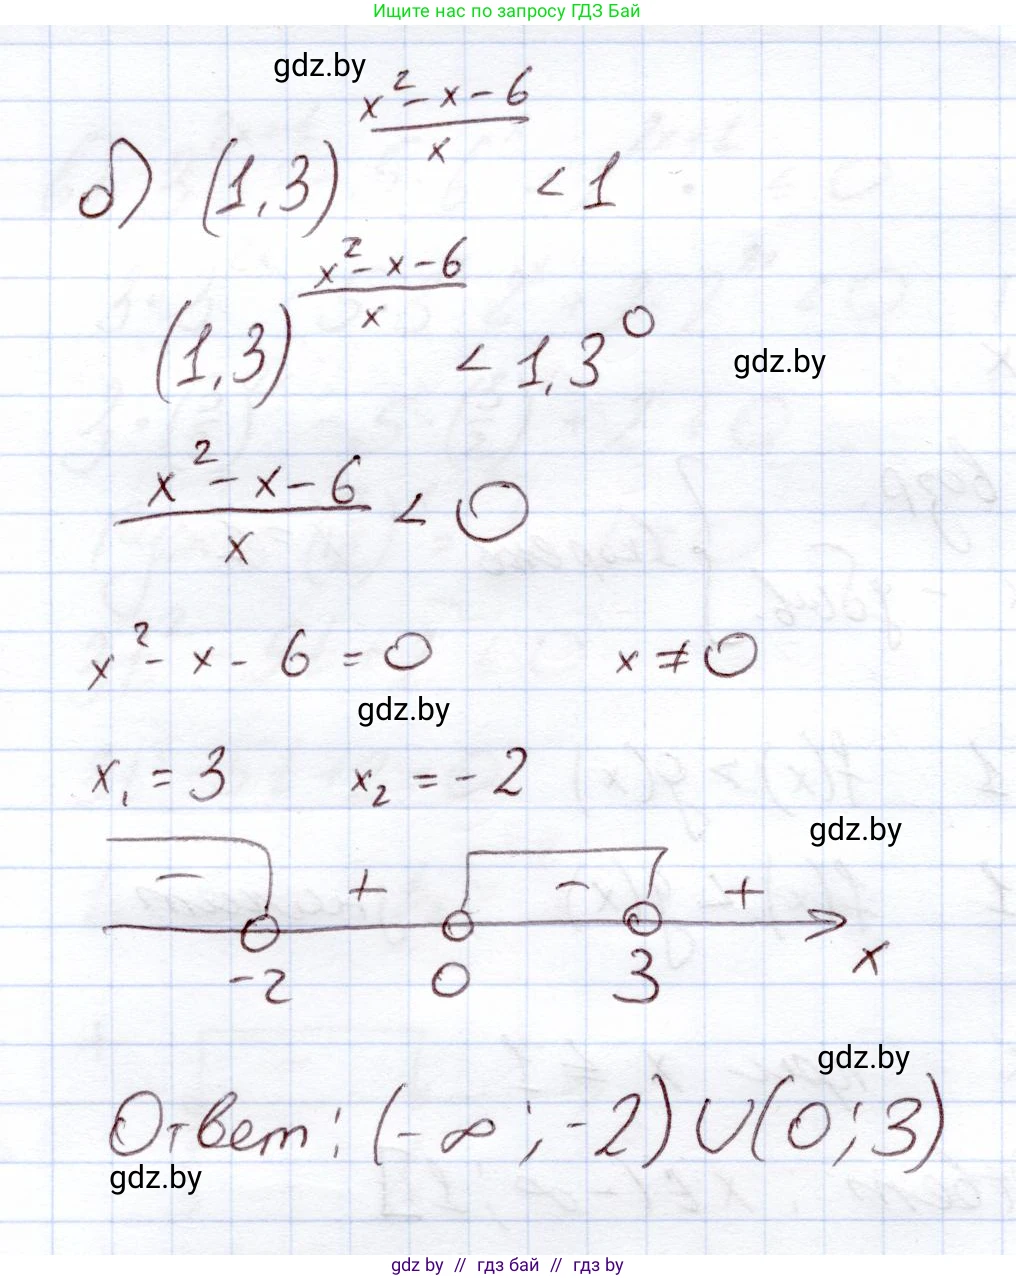 Ищите нас по запросу ГДЗ Бай
gdz.by
б) (1,3)^((x² - x - 6)/x) < 1
(1,3)^((x² - x - 6)/x) < 1,3⁰
gdz.by
(x² - x - 6)/x < 0
x² - x - 6 = 0 x ≠ 0
gdz.by
x₁ = 3 x₂ = -2
gdz.by
− + − +
-2 0 3 x
gdz.by
Ответ: (-∞; -2) ∪ (0; 3)
gdz.by
gdz by // гдз бай // гдз by